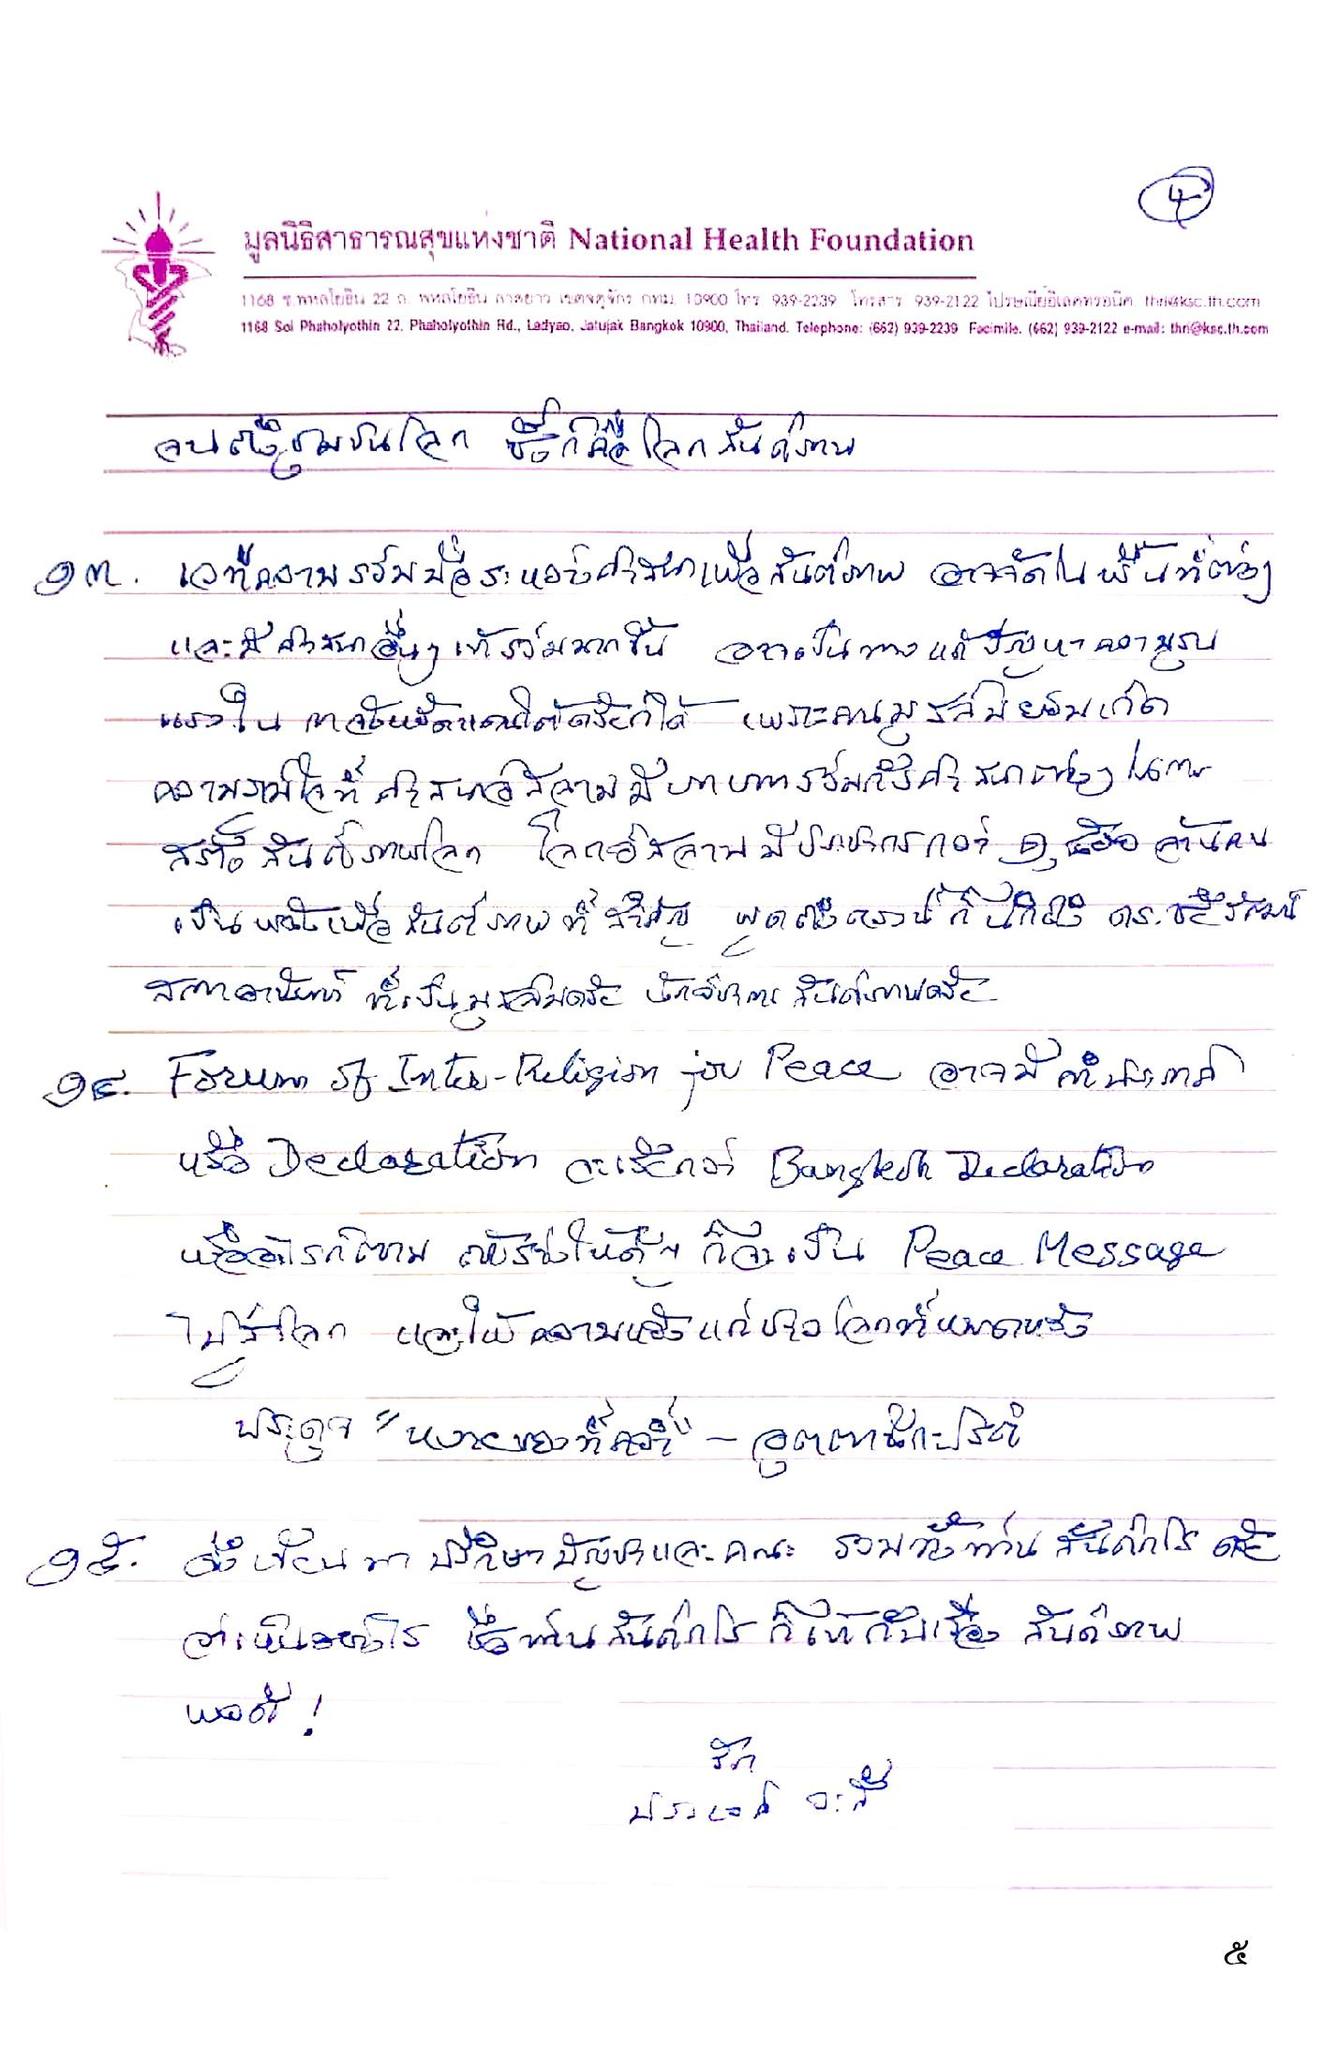 4
มูลนิธิสาธารณสุขแห่งชาติ National Health Foundation
1168 ซ.พหลโยธิน 22 ถ. พหลโยธิน ลาดยาว เขตจตุจักร กทม. 10900 โทร. 939-2239 โทรสาร 939-2122 ไปรษณีย์อิเลคทรอนิค thri@ksc.th.com
1168 Soi Phaholyothin 22, Phaholyothin Rd., Ladyao, Jatujak Bangkok 10900, Thailand. Telephone: (662) 939-2239 Facimile. (662) 939-2122 e-mail: thri@ksc.th.com
จนถึงชุมชนโลก ซึ่งก็คือโลกสันติภาพ
๑๓. เวทีความร่วมมือระหว่างศาสนาเพื่อสันติภาพ อาจจัดในพื้นที่ต่างๆ
และมีศาสนาอื่นๆ เข้าร่วมมากขึ้น อาจเป็นทางแก้ปัญหาความรุน
แรงใน ๓ จังหวัดแดนใต้ด้วยก็ได้ เพราะคนมุสลิมย่อมเกิด
ความภูมิใจที่ศาสนาอิสลามมีบทบาทร่วมกับศาสนาต่างๆ ในการ
สร้างสันติภาพโลก โลกอิสลามมีประชากรกว่า ๑,๕๐๐ ล้านคน
เป็นพลังเพื่อสันติภาพที่สำคัญ พูดถึงตรงนี้ก็นึกถึง ดร.ชัยวัฒน์
สถาอานันท์ ที่เป็นมุสลิมด้วย นักวิชาการสันติภาพด้วย
๑๔. Forum of Inter-Religion for Peace อาจมีคำประกาศ
หรือ Declaration จะเรียกว่า Bangkok Declaration
หรืออะไรก็ตาม ถ้าร่างให้ดีๆ ก็จะเป็น Peace Message
ไปสู่โลก และให้ความหวังแก่ชาวโลกที่หมดหวัง
ประดุจ "หงายของที่คว่ำ" – อุตตานิกะปริตํ
๑๕. จึงเขียนมาปรึกษา และคณะ รวมทั้งท่านสันติกโร ด้วย
ว่าเห็นอย่างไร ชื่อท่านสันติกโร ก็เข้ากับเรื่อง สันติภาพ
พอดี!
รัก
ประเวศ วะสี
๕